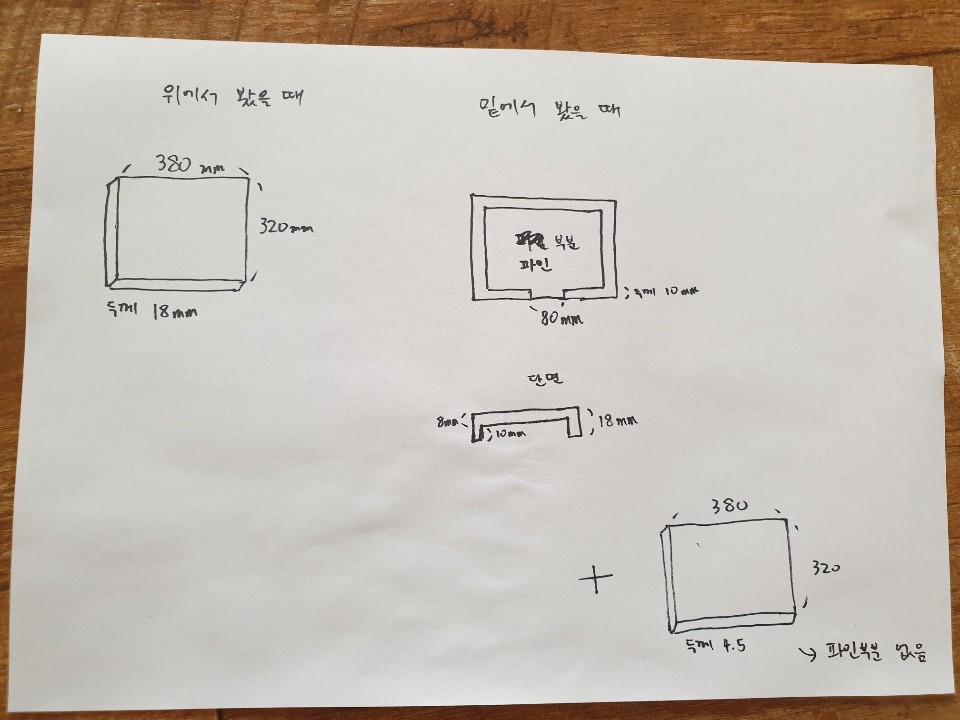 위에서 봤을 때
380 mm
320mm
두께 18mm
밑에서 봤을 때
부분
파인
두께 10mm
80mm
단면
8mm
10mm
18mm
+
380
320
두께 4.5
→ 파인부분 없음